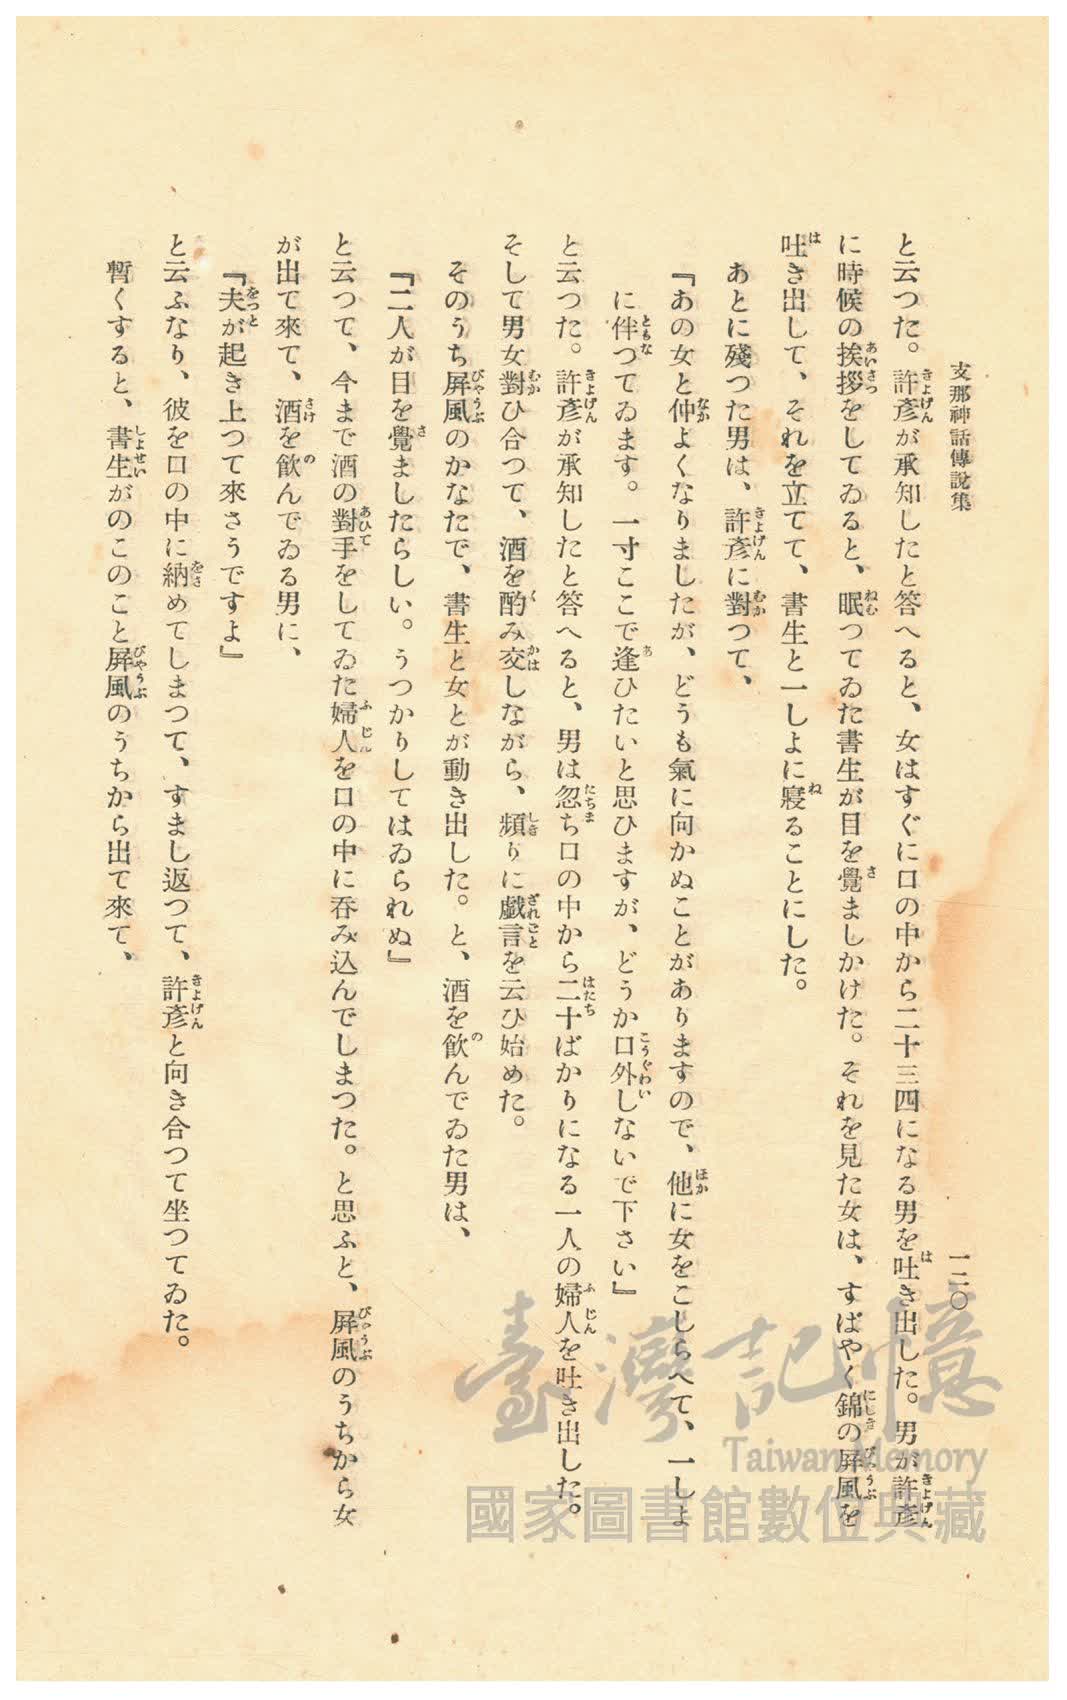 支那神話傳説集
一二〇
と云つた。許彥が承知したと答へると、女はすぐに口の中から二十三四になる男を吐き出した。男が許彥
に時候の挨拶をしてゐると、眠つてゐた書生が目を覺ましかけた。それを見た女は、すばやく錦の屏風を
吐き出して、それを立てて、書生と一しよに寢ることにした。
あとに殘つた男は、許彥に對つて、
『あの女と仲よくなりましたが、どうも氣に向かぬことがありますので、他に女をこしらへて、一しよ
に伴つてゐます。一寸ここで逢ひたいと思ひますが、どうか口外しないで下さい』
と云つた。許彥が承知したと答へると、男は忽ち口の中から二十ばかりになる一人の婦人を吐き出した。
そして男女對ひ合つて、酒を酌み交しながら、頻りに戲言を云ひ始めた。
そのうち屏風のかなたで、書生と女とが動き出した。と、酒を飮んでゐた男は、
『二人が目を覺ましたらしい。うつかりしてはゐられぬ』
と云つて、今まで酒の對手をしてゐた婦人を口の中に呑み込んでしまつた。と思ふと、屏風のうちから女
が出て來て、酒を飮んでゐる男に、
『夫が起き上つて來さうですよ』
と云ふなり、彼を口の中に納めてしまつて、すまし返つて、許彥と向き合つて坐つてゐた。
暫くすると、書生がのこのこと屏風のうちから出て來て、
臺灣記憶
Taiwan Memory
國家圖書館數位典藏